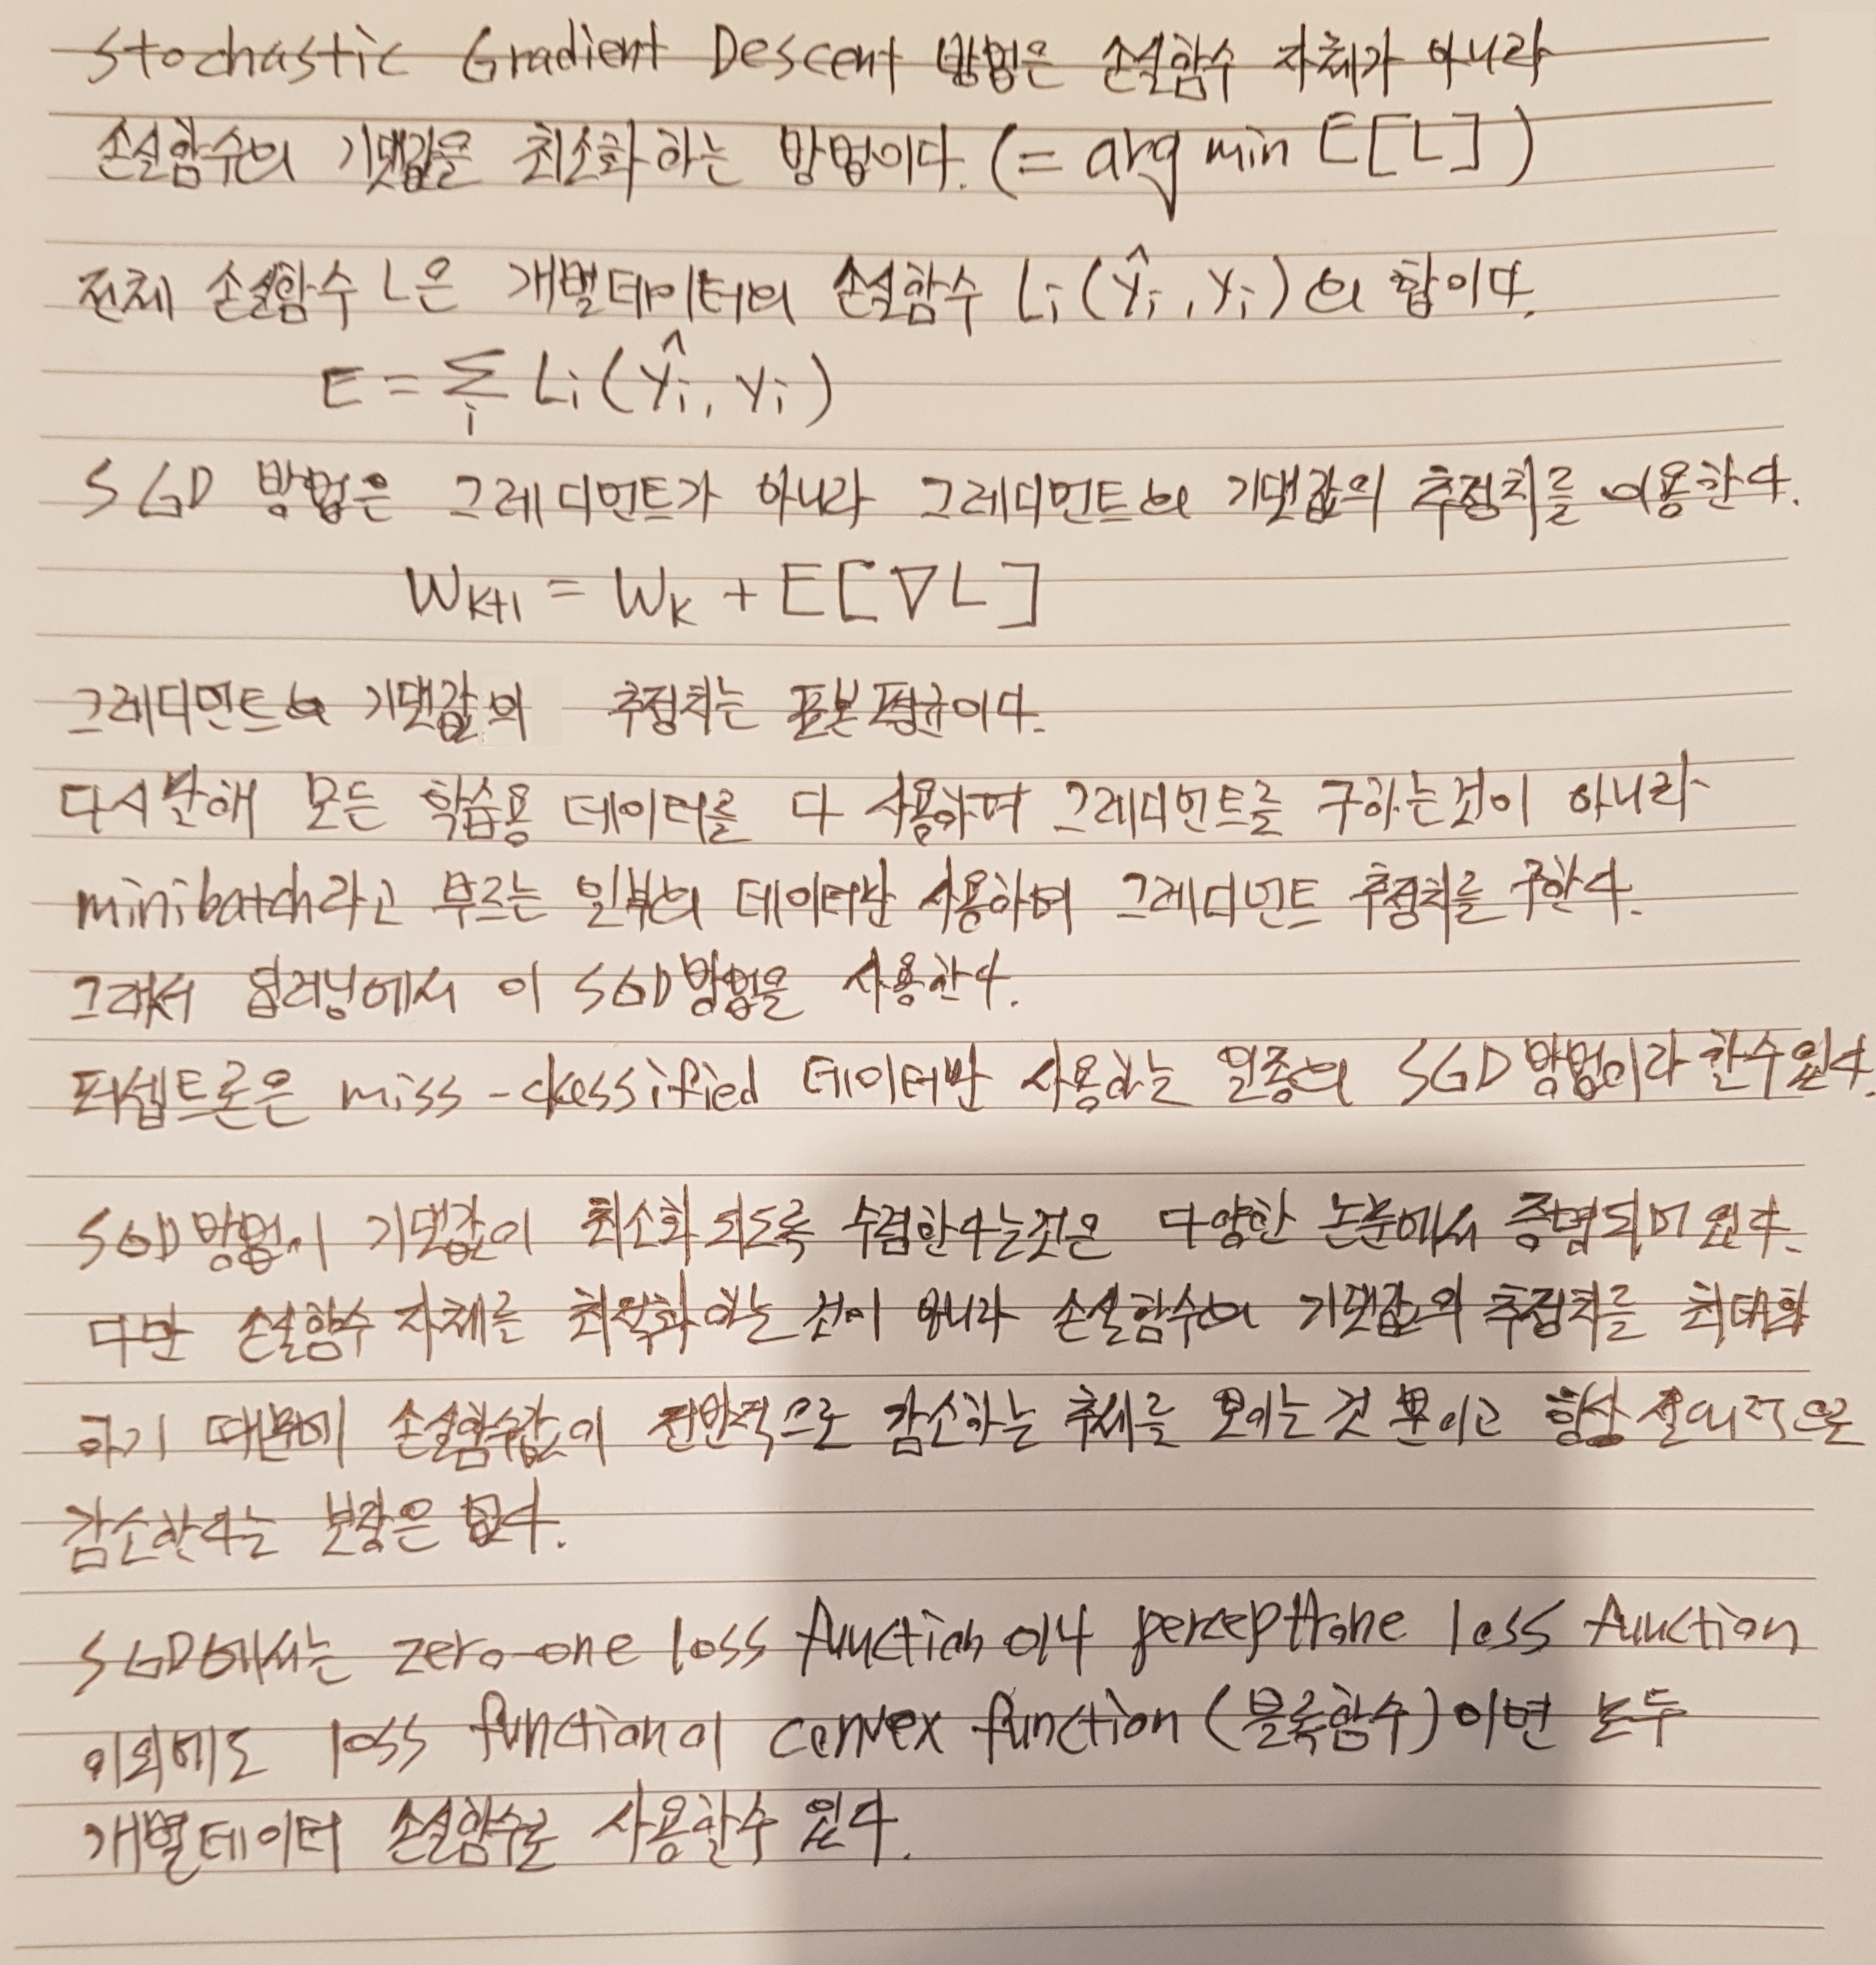 Stochastic Gradient Descent 방법은 손실함수 자체가 아니라
손실함수의 기댓값을 최소화 하는 방법이다. (= arg min E[L])
전체 손실함수 L은 개별데이터의 손실함수 Li(ŷi, yi)의 합이다.
E = Σi Li(ŷi, yi)
SGD 방법은 그레디언트가 아니라 그레디언트의 기댓값의 추정치를 이용한다.
WK+1 = WK + E[∇L]
그레디언트의 기댓값의 추정치는 표본평균이다.
다시말해 모든 학습용 데이터를 다 사용하여 그레디언트를 구하는것이 아니라
minibatch라고 부르는 일부의 데이터만 사용하여 그레디언트 추정치를 구한다.
그래서 딥러닝에서 이 SGD방법을 사용한다.
퍼셉트론은 miss-classified 데이터만 사용하는 일종의 SGD방법이라 할수있다.
SGD방법이 기댓값이 최소화 되도록 수렴한다는것은 다양한 논문에서 증명되어 있다.
다만 손실함수 자체를 최적화 하는 것이 아니라 손실함수의 기댓값의 추정치를 최대화
하기 때문에 손실함수값이 전반적으로 감소하는 추세를 보이는 것 뿐이고 항상 절대적으로
감소한다는 보장은 없다.
SGD에서는 zero-one loss function이나 perceptrone loss function
이외에도 loss function이 convex function (볼록함수)이면 모두
개별데이터 손실함수로 사용할수 있다.